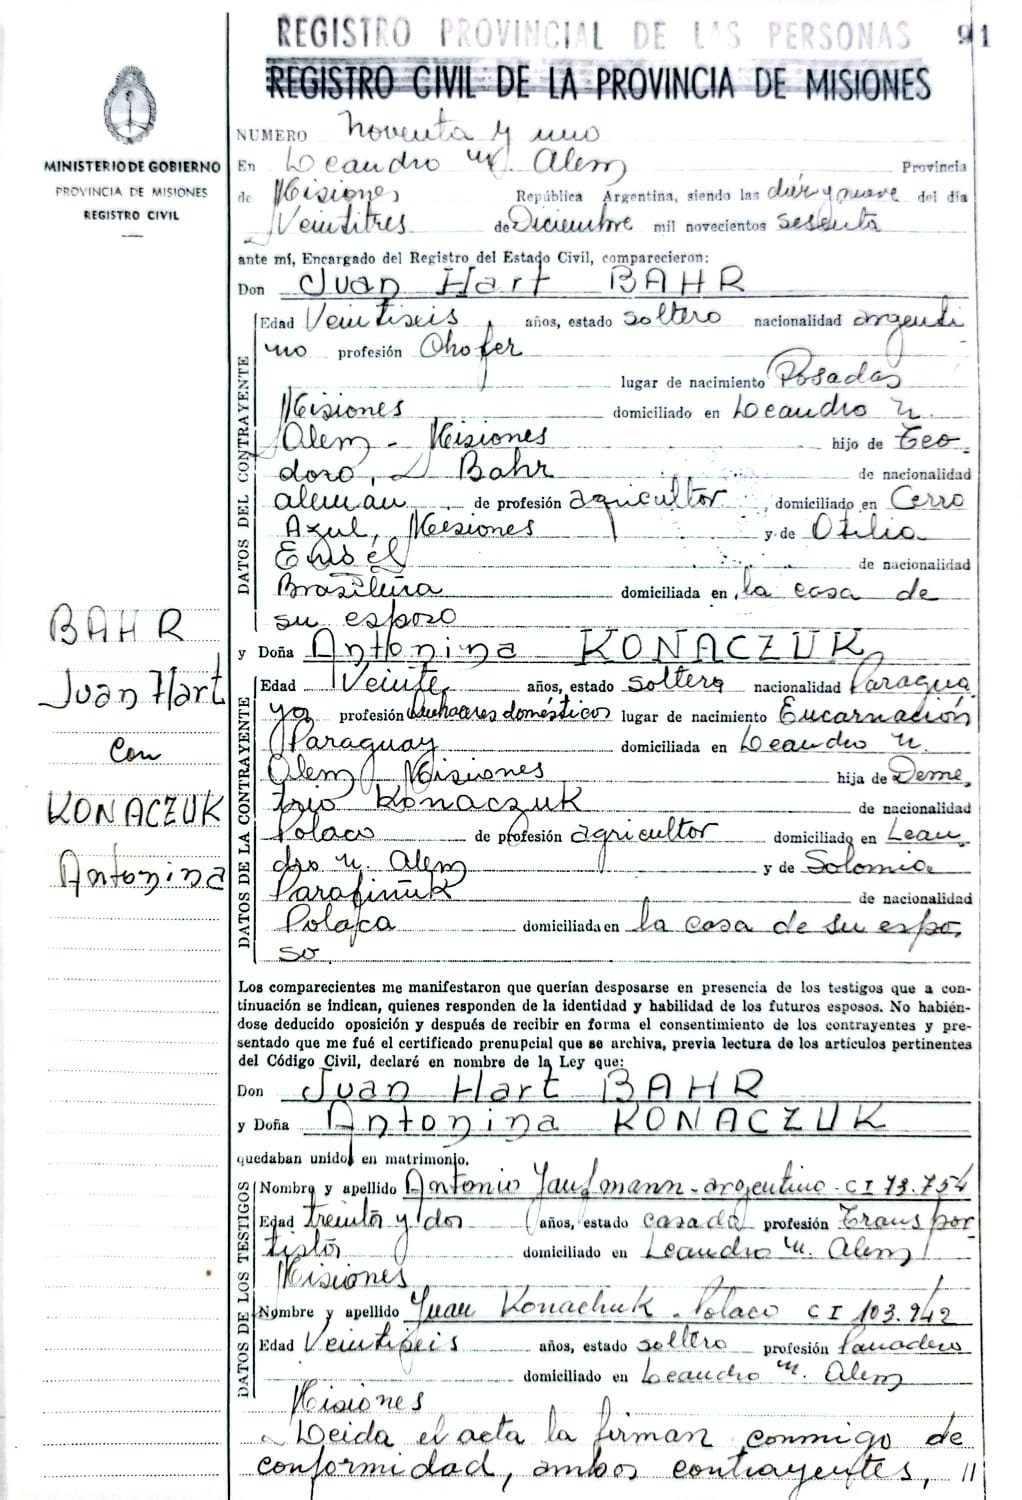 REGISTRO PROVINCIAL DE LAS PERSONAS 91
REGISTRO CIVIL DE LA PROVINCIA DE MISIONES
MINISTERIO DE GOBIERNO
PROVINCIA DE MISIONES
REGISTRO CIVIL
NUMERO Noventa y uno
En Leandro N. Alem Provincia
de Misiones República Argentina, siendo las diez y nueve del día
Veintitres de Diciembre mil novecientos sesenta
ante mí, Encargado del Registro del Estado Civil, comparecieron:
Don Juan Hart BAHR
DATOS DEL CONTRAYENTE
Edad Veintiseis años, estado soltero nacionalidad argenti
no profesión Chofer
lugar de nacimiento Posadas
Misiones domiciliado en Leandro N.
Alem - Misiones hijo de Teo-
doro, Bahr de nacionalidad
alemán de profesión agricultor, domiciliado en Cerro
Azul, Misiones y de Otilia
de nacionalidad
Brasileña domiciliada en la casa de
su esposo
y Doña Antonina KONACZUK
DATOS DE LA CONTRAYENTE
Edad Veinte años, estado soltera nacionalidad Paragua
ya profesión Quehaceres domésticos lugar de nacimiento Encarnación
Paraguay domiciliada en Leandro N.
Alem Misiones hija de Deme,
trio Konaczuk de nacionalidad
Polaco de profesión agricultor domiciliado en Lean,
dro N. Alem y de Solomia
Parafiñuk de nacionalidad
Polaca domiciliada en la casa de su espo,
so.
BAHR
Juan Hart
con
KONACZUK
Antonina
Los comparecientes me manifestaron que querían desposarse en presencia de los testigos que a con-
tinuación se indican, quienes responden de la identidad y habilidad de los futuros esposos. No habién-
dose deducido oposición y después de recibir en forma el consentimiento de los contrayentes y pre-
sentado que me fué el certificado prenupcial que se archiva, previa lectura de los artículos pertinentes
del Código Civil, declaré en nombre de la Ley que:
Don Juan Hart BAHR
y Doña Antonina KONACZUK
quedaban unidos en matrimonio.
DATOS DE LOS TESTIGOS
Nombre y apellido Antonio Jaufmann - argentino - CI 73.754
Edad treinta y dos años, estado casado profesión Transpor-
tista domiciliado en Leandro N. Alem
Misiones
Nombre y apellido Juan Konachuk - Polaco CI 103.942
Edad Veintiseis años, estado soltero profesión Panadero
domiciliado en Leandro N. Alem
Misiones
Leida el acta la firman conmigo de
conformidad, ambos contrayentes, //